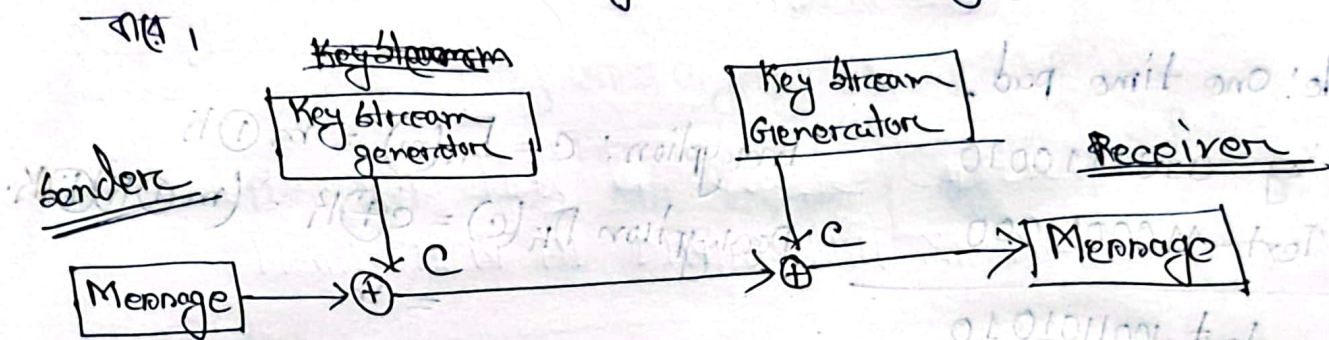 করে ।
Key stream
generator
Key stream
Generator
Sender
Receiver
C
C
Message
Message